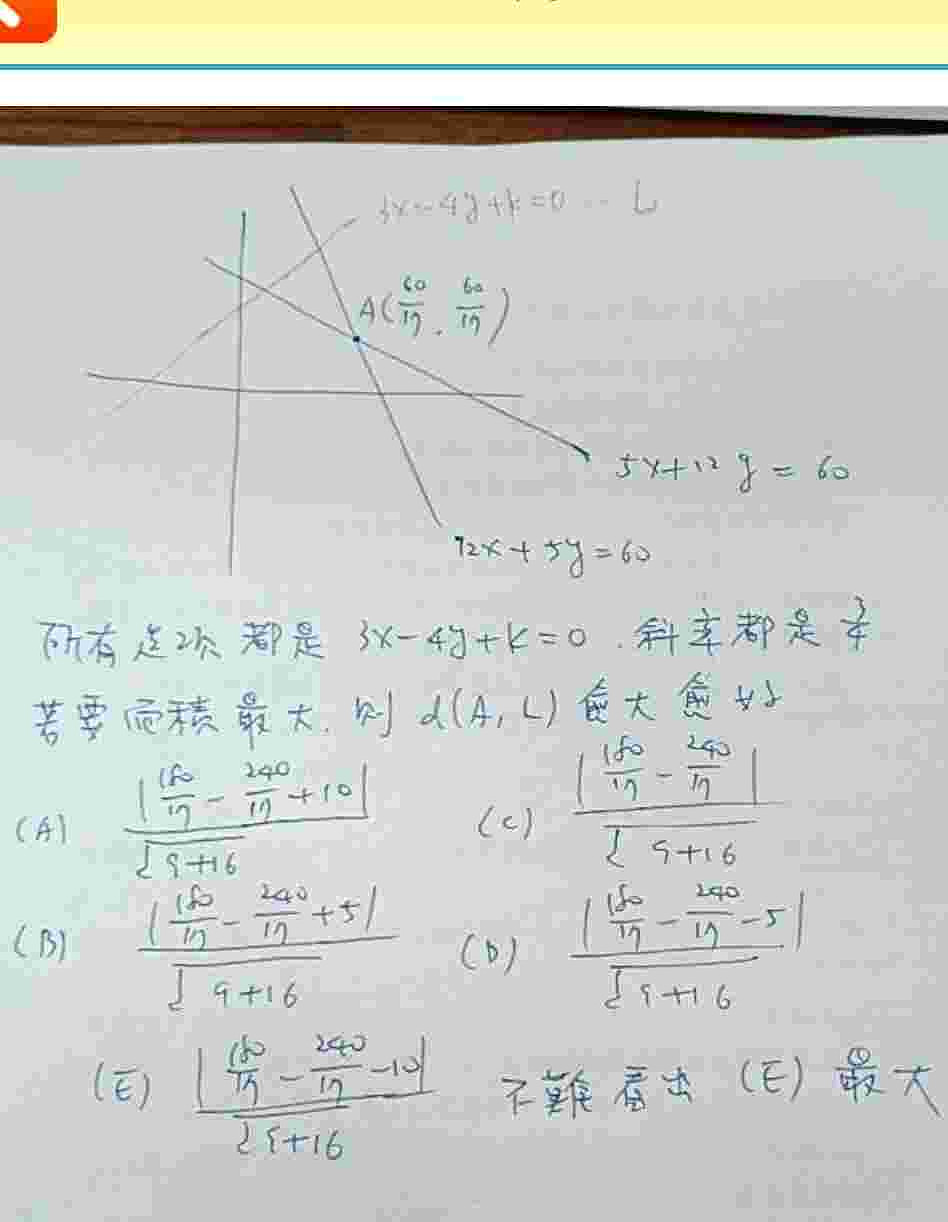 3x-4y+k=0 … L
A(60/17, 60/17)
5x+12y=60
12x+5y=60
所有选项都是 3x-4y+k=0, 斜率都是 3/4
若要面積最大, 则 d(A, L) 愈大愈好
(A) |180/17 - 240/17 + 10| / √(9+16)
(C) |180/17 - 240/17| / √(9+16)
(B) |180/17 - 240/17 + 5| / √(9+16)
(D) |180/17 - 240/17 - 5| / √(9+16)
(E) |180/17 - 240/17 - 10| / √(9+16) 不難看出 (E) 最大